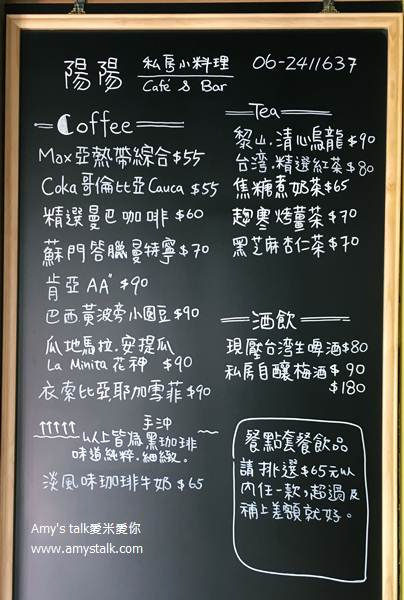 陽陽 私房小料理 06-2411637
Café & Bar
Coffee
Max亞熱帶綜合$55
Coka哥倫比亞Cauca $55
精選曼巴咖啡 $60
蘇門答臘曼特寧 $70
肯亞AA" $90
巴西黃波旁小圓豆 $90
瓜地馬拉.安提瓜
La Minita 花神 $90
衣索比亞耶加雪菲$90
手沖
以上皆為黑珈琲
味道純粹.細緻。
淡風味珈琲牛奶 $65
Tea
黎山.清心烏龍 $90
台湾.精選紅茶 $80
焦糖煮奶茶$65
趨寒烤薑茶 $70
黑芝麻杏仁茶 $70
酒飲
現壓台湾生啤酒$80
私房自釀梅酒 $90
$180
餐點套餐飲品
請挑選$65元以
內任一款,超過及
補上差額就好。
Amy's talk愛米愛你
www.amystalk.com